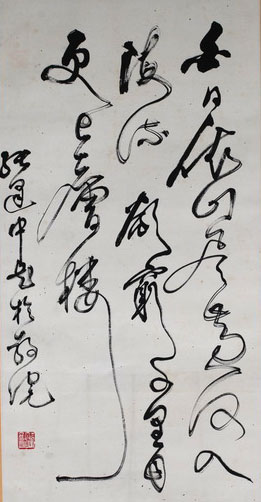 白日依山尽黄河入
海流欲窮千里目
更上一層楼
建中於